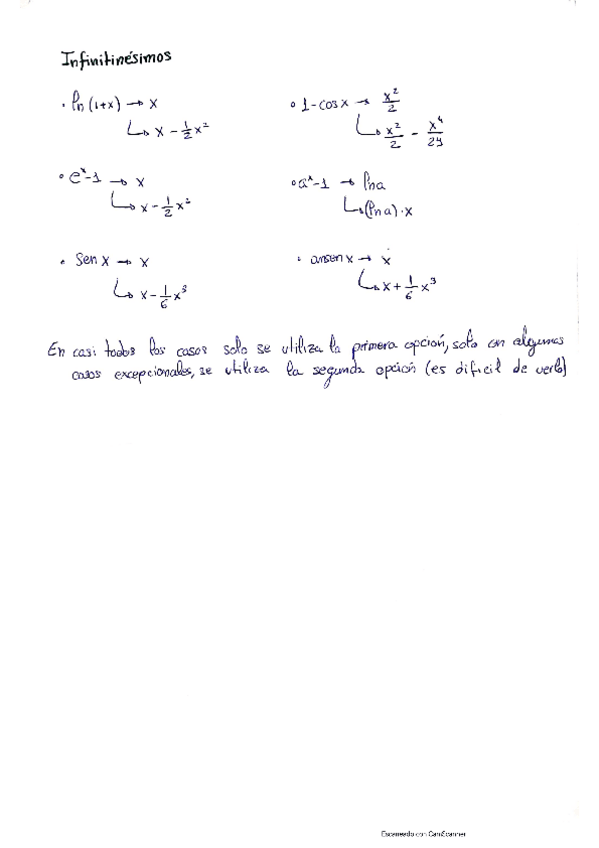 Infinitinésimos
• ln(1+x) → x
↳ x - 1/2 x²
• 1-cosx → x²/2
↳ x²/2 - x⁴/24
• eˣ-1 → x
↳ x - 1/2 x²
• aˣ-1 → lna
↳ (lna)·x
• Sen x → x
↳ x - 1/6 x³
• arcsen x → x
↳ x + 1/6 x³
En casi todos los casos solo se utiliza la primera opción, solo en algunos
casos excepcionales, se utiliza la segunda opción (es dificil de verlo)
Escaneado con CamScanner